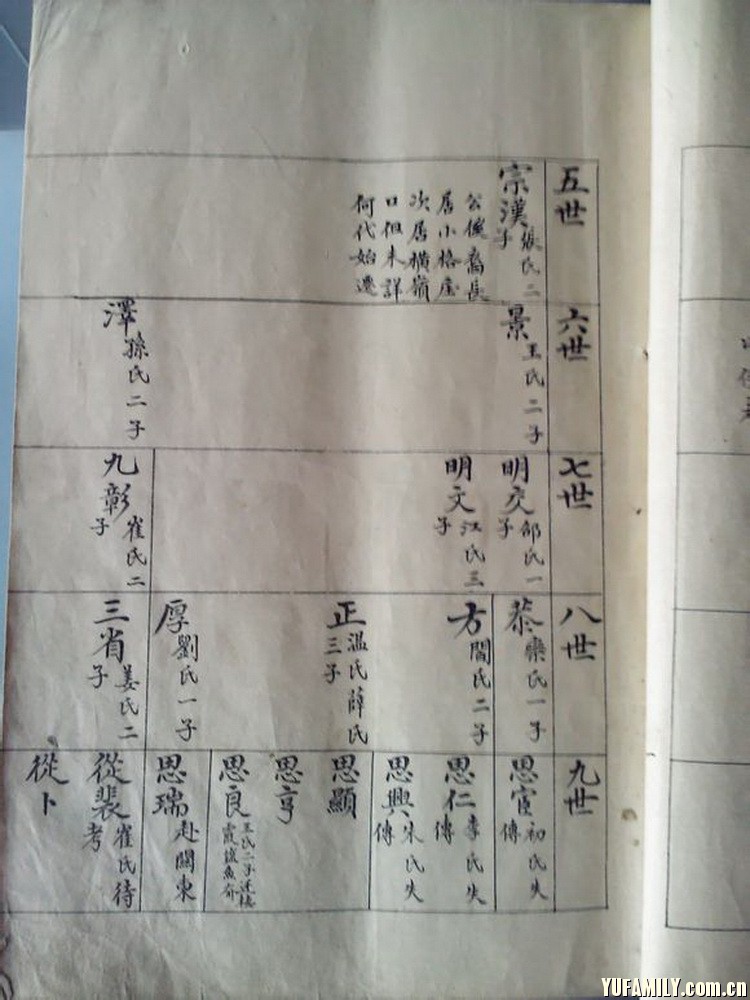 五世
宗漢 張氏二子
公後裔長
居小格庄
次居橫嶺
口但未詳
何代始遷
六世
景 王氏二子
澤 孫氏二子
七世
明交 邹氏一子
明文 江氏三子
九彰 崔氏二子
八世
恭 欒氏一子
方 閻氏二子
正 溫氏薛氏三子
厚 劉氏一子
三省 姜氏二子
九世
思宦 初氏失傳
思仁 李氏失傳
思興 朱氏失傳
思顯
思亨
思良 王氏二子遷棲霞
思瑞 赴關東
從裴 崔氏待考
從卜
YUFAMILY.com.cn